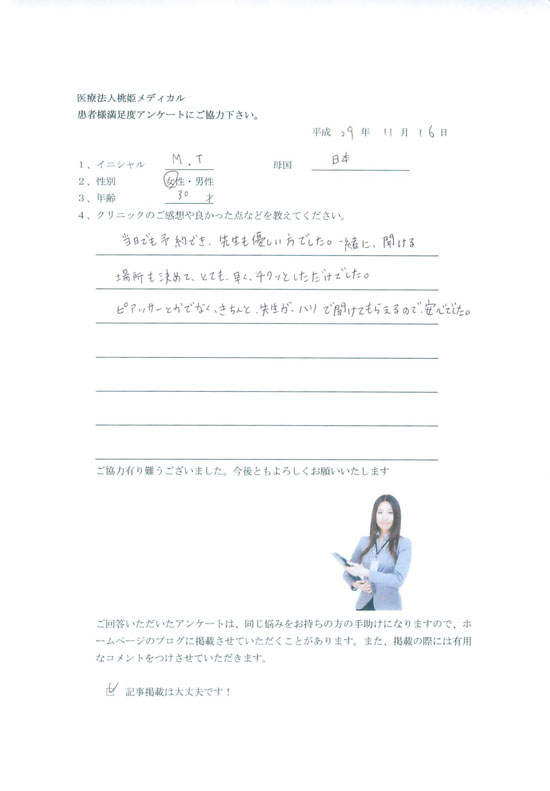 医療法人桃姫メディカル
患者様満足度アンケートにご協力下さい。
平成 29 年 11 月 16 日
1、イニシャル M.T 母国 日本
2、性別 女性・男性
3、年齢 30 才
4、クリニックのご感想や良かった点などを教えてください。
当日でも予約でき、先生も優しい方でした。一緒に、開ける
場所も決めて、とても、早く、チクッとしただけでした。
ピアッサーとかでなく、きちんと、先生が、ハリで開けてもらえるので、安心でした。
ご協力有り難うございました。今後ともよろしくお願いいたします
ご回答いただいたアンケートは、同じ悩みをお持ちの方の手助けになりますので、ホ
ームページのブログに掲載させていただくことがあります。また、掲載の際には有用
なコメントをつけさせていただきます。
記事掲載は大丈夫です！